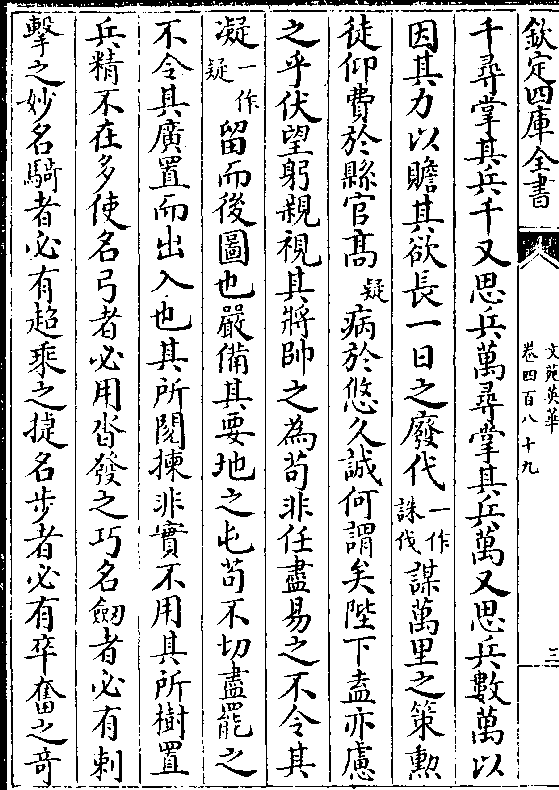 欽定四庫全書
文苑英華
卷四百八十九
三
千尋掌其兵千又思兵萬尋掌其兵萬又思兵數萬以
因其力以贍其欲長一日之廢代一作誅伐謀萬里之策勲
徒仰費於縣官髙疑病於悠久誠何謂矣陛下盍亦慮
之乎伏望躬親視其將帥之為苟非任盡易之不令其
凝一作疑留而後圖也嚴備其要地之屯苟不切盡罷之
不令其廣置而出入也其所閱揀非實不用其所樹置
兵精不在多使名弓者必用沓發之巧名劒者必有刺
擊之妙名騎者必有趫乘之㨗名步者必有卒奮之竒